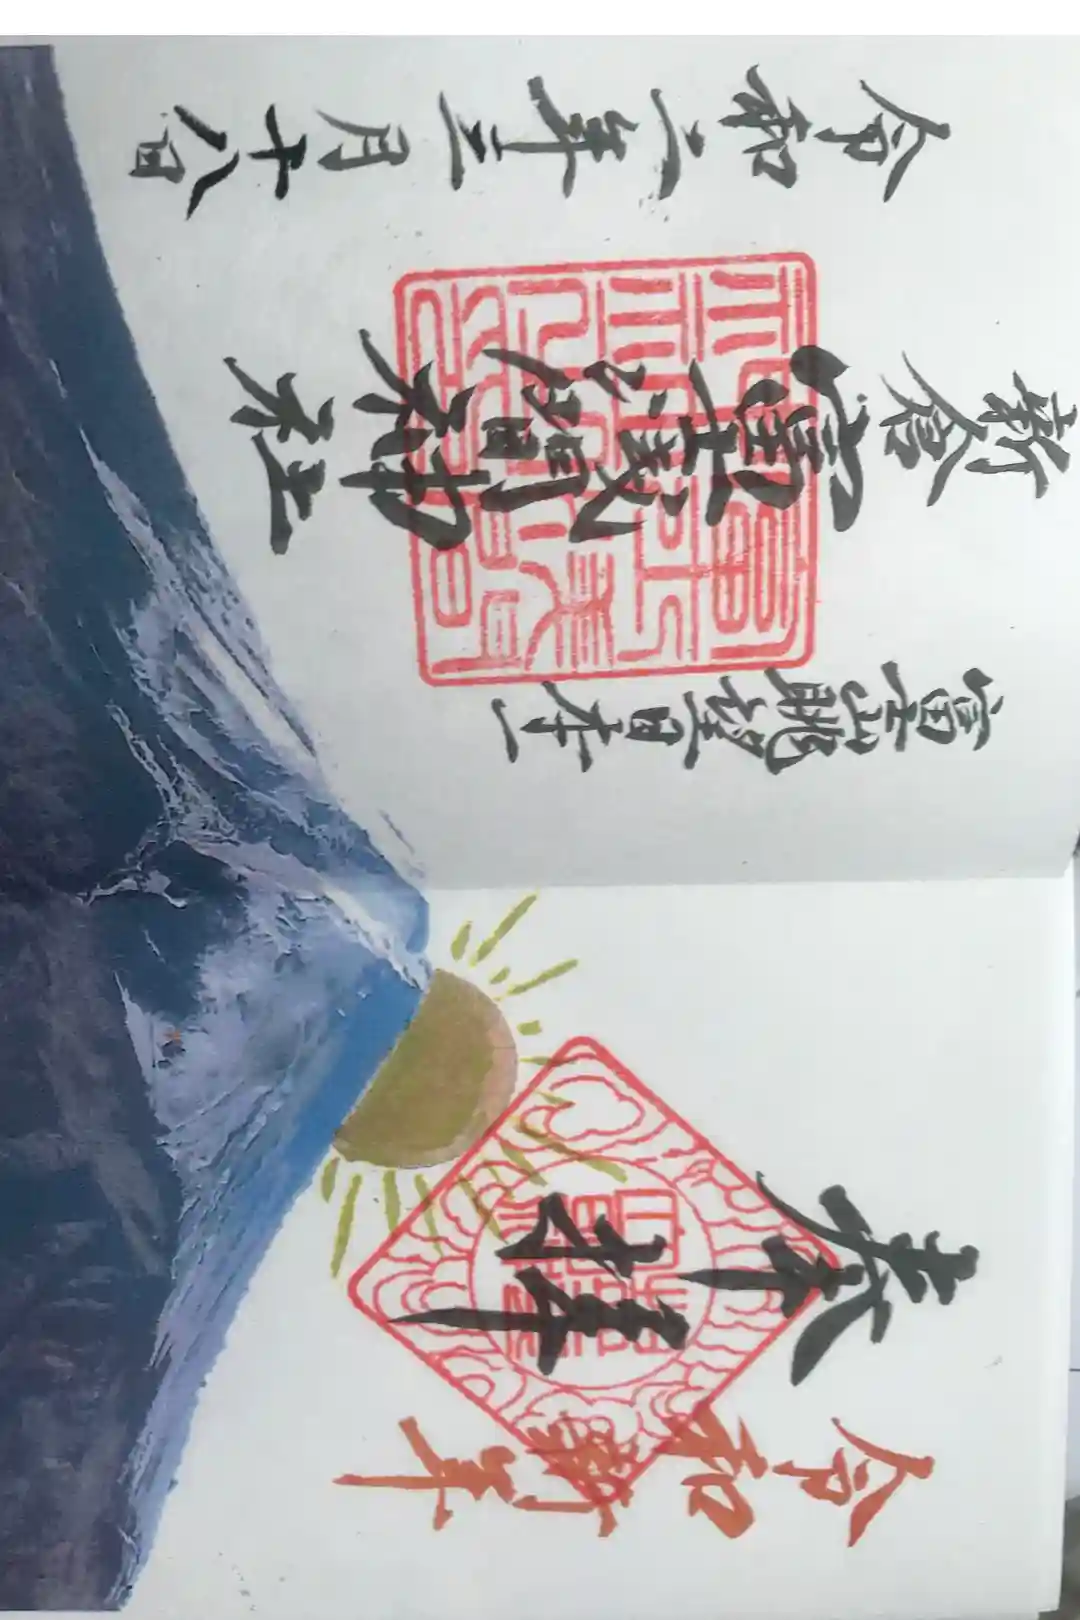 令和 年
奉拝
富士山眺望日本一
新倉
富士浅間神社
令和二年三月十八日